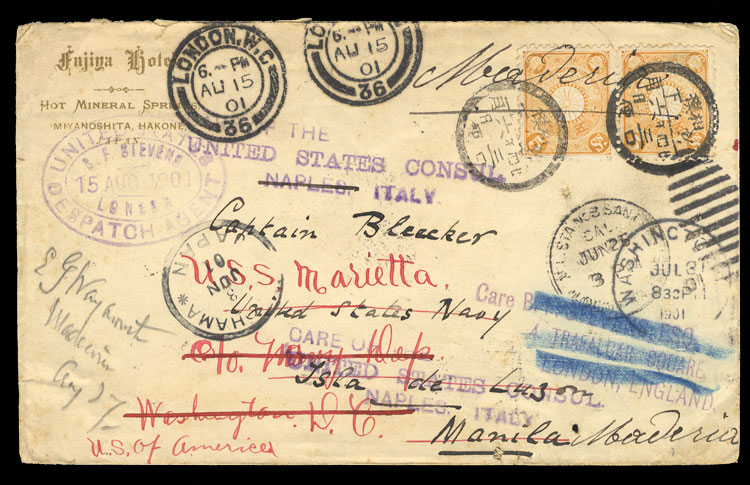 Fujiya Hotel
HOT MINERAL SPRINGS
MIYANOSHITA, HAKONE,
JAPAN.
LONDON. W.C.
6. — PM
AU 15
01
36
LONDON. W.C.
6. — PM
AU 15
01
36
Maderia
UNITED STATES
B. F. STEVENS
15 AUG. 1901
LONDON
DESPATCH AGENT
OF THE
UNITED STATES CONSUL
NAPLES, ITALY.
Captain Bleecker
U.S.S. Marietta
United States Navy
c/o Navy Dep.
Isla de Luzon
Washington D.C.
Manila Maderia
U.S. of America
JAPAN
JUN
01
CAL.
JUN 25
WASHINGTON
JUL 3
8 30 PM
1901
Care B. F. STEVENS ESQ.
4, TRAFALGAR SQUARE,
LONDON, ENGLAND.
CARE OF
UNITED STATES CONSUL
NAPLES, ITALY
Maderia
Aug 27